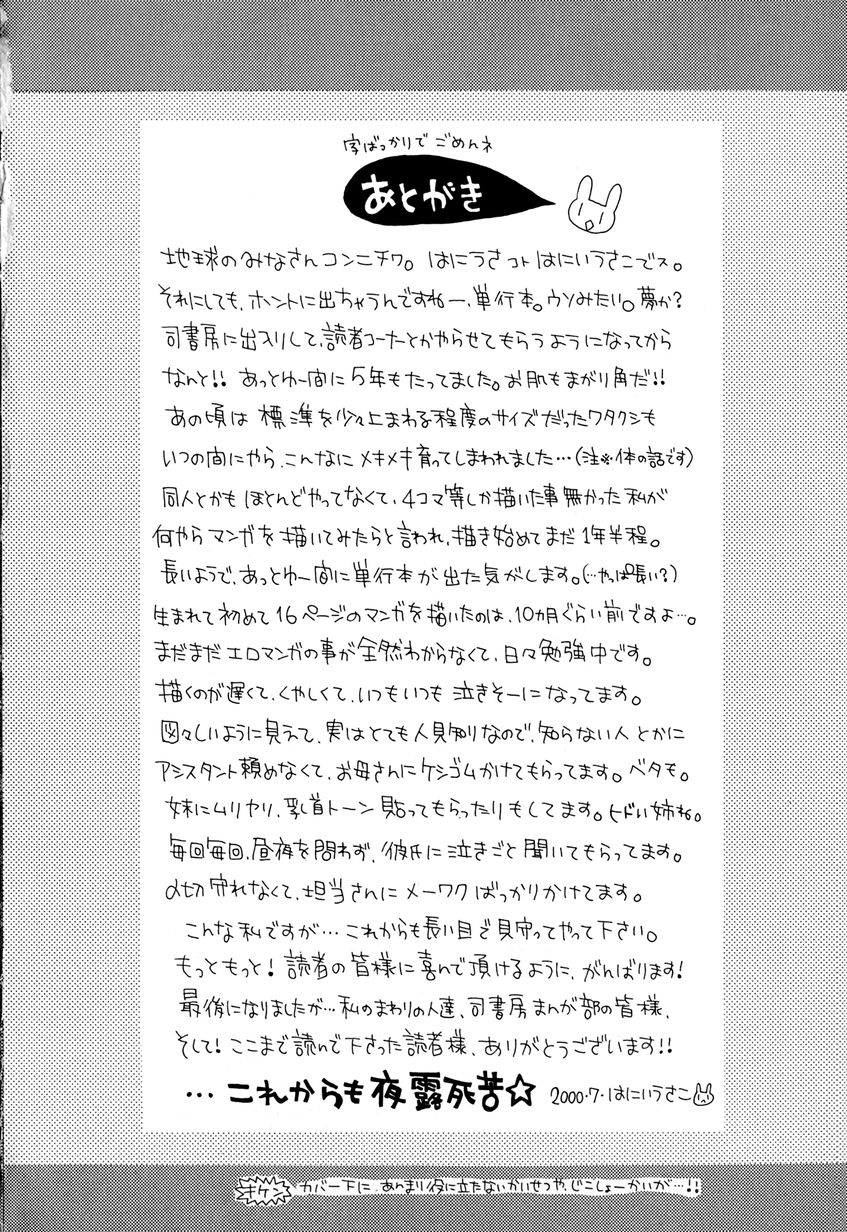 字ばっかりで ごめんネ
あとがき
地球のみなさんコンニチワ。はにうさコト はにいうさこでス。
それにしても、ホントに出ちゃうんですねー、単行本。ウソみたい。夢か?
司書房に出入りして、読者コーナーとかやらせてもらうようになってから
なんと!! あっとゆー間に5年もたってました。お肌もまがり角だ!!
あの頃は 標準を少々上まわる程度のサイズだったワタクシも
いつの間にやら、こんなに メキメキ育ってしまわれました…(注※体の話です)
同人とかも ほとんどやってなくて、4コマ等しか描いた事無かった私が
何やら マンガを描いてみたらと言われ、描き始めてまだ1年半程。
長いようで、あっとゆー間に単行本が出た気がします。(…やっぱ長い?)
生まれて初めて16ページのマンガを描いたのは、10ヵ月ぐらい前ですよ…。
まだまだエロマンガの事が全然わからなくて、日々勉強中です。
描くのが遅くて、くやしくて、いつもいつも 泣きそーになってます。
図々しいように見えて、実はとても人見知りなので、知らない人とかに
アシスタント頼めなくて、お母さんにケシゴムかけてもらってます。ベタも。
妹にムリヤリ、乳首トーン貼ってもらったりもしてます。ヒドい姉ね。
毎回毎回、昼夜を問わず、彼氏に泣きごと聞いてもらってます。
〆切守れなくて、担当さんにメーワクばっかりかけてます。
こんな私ですが… これからも長い目で見守ってやって下さい。
もっともっと! 読者の皆様に喜んで頂けるように、がんばります!
最後になりましたが…私のまわりの人達、司書房まんが部の皆様、
そして! ここまで読んで下さった読者様、ありがとうございます!!
… これからも夜露死苦☆ 2000・7・はにいうさこ
オケン カバー下に、あんまり役に立たないかいせつや、じこしょーかいが…!!